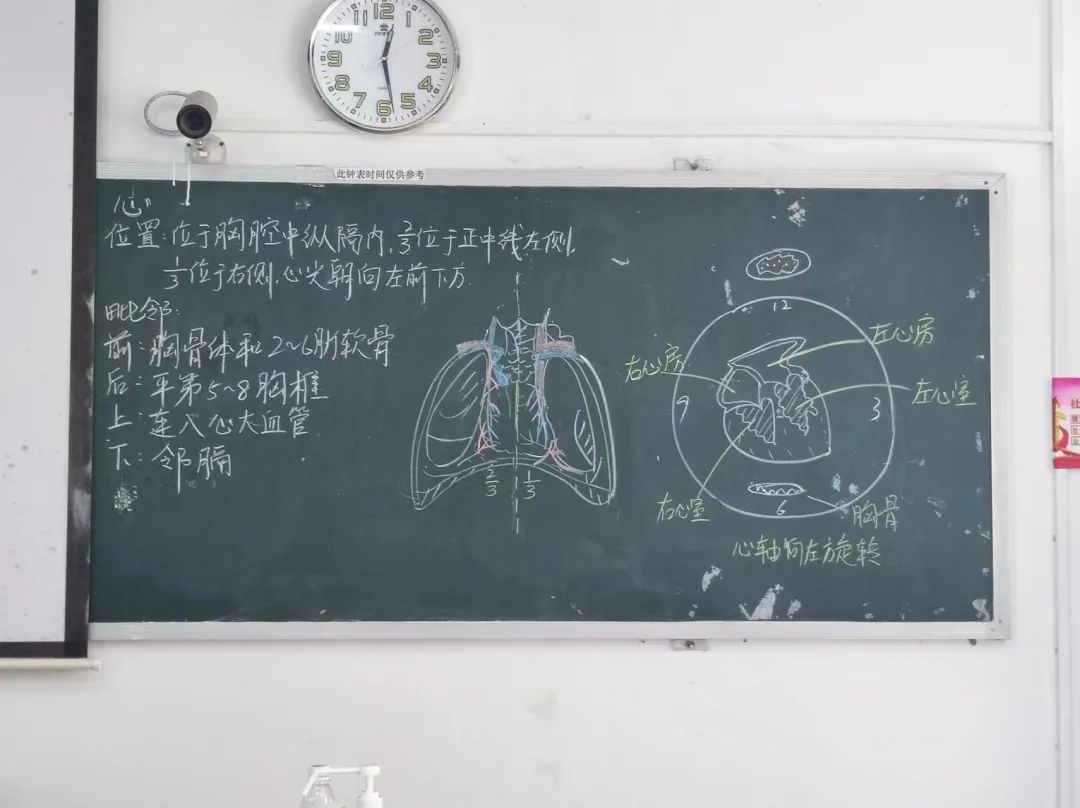 12
1
2
3
4
5
6
7
8
9
10
11
此钟表时间仅供参考
心
位置:位于胸腔中纵隔内,2/3位于正中线左侧,
1/3位于右侧,心尖朝向左前下方.
毗邻:
前:胸骨体和2~6肋软骨
后:平第5~8胸椎
上:连入心大血管
下:邻膈
2/3
1/3
12
左心房
右心房
左心室
9
3
右心室
6
胸骨
心轴向左旋转
社